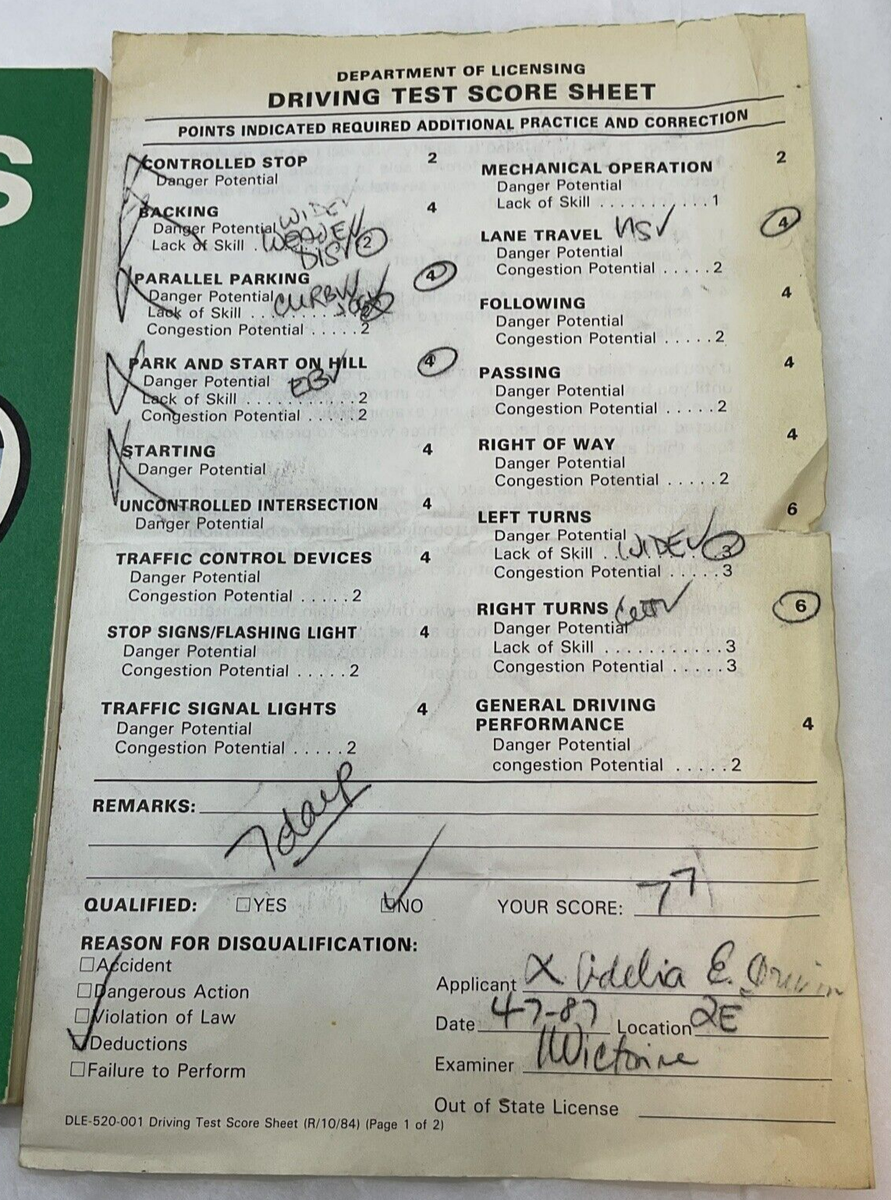 S
DEPARTMENT OF LICENSING
DRIVING TEST SCORE SHEET
POINTS INDICATED REQUIRED ADDITIONAL PRACTICE AND CORRECTION
CONTROLLED STOP 2
Danger Potential
BACKING 4
Danger Potential WIDE
Lack of Skill . 2
DIS
PARALLEL PARKING 4
Danger Potential CURB
Lack of Skill . . .
Congestion Potential . . . . . 2
PARK AND START ON HILL 4
Danger Potential EB
Lack of Skill . . . . . . . . . . 2
Congestion Potential . . . . . 2
STARTING 4
Danger Potential
UNCONTROLLED INTERSECTION 4
Danger Potential
TRAFFIC CONTROL DEVICES 4
Danger Potential
Congestion Potential . . . . . 2
STOP SIGNS/FLASHING LIGHT 4
Danger Potential
Congestion Potential . . . . . 2
TRAFFIC SIGNAL LIGHTS 4
Danger Potential
Congestion Potential . . . . . 2
MECHANICAL OPERATION 2
Danger Potential
Lack of Skill . . . . . . . . . . 1
LANE TRAVEL NS 4
Danger Potential
Congestion Potential . . . . . 2
FOLLOWING 4
Danger Potential
Congestion Potential . . . . . 2
PASSING 4
Danger Potential
Congestion Potential . . . . . 2
RIGHT OF WAY 4
Danger Potential
Congestion Potential . . . . . 2
LEFT TURNS 6
Danger Potential
Lack of Skill . . WIDE 3
Congestion Potential . . . . . 3
RIGHT TURNS 6
Danger Potential
Lack of Skill . . . . . . . . . . 3
Congestion Potential . . . . . 3
GENERAL DRIVING
PERFORMANCE 4
Danger Potential
congestion Potential . . . . . 2
REMARKS:
7 days
QUALIFIED: YES NO YOUR SCORE: 77
REASON FOR DISQUALIFICATION:
Accident
Dangerous Action
Violation of Law
Deductions
Failure to Perform
Applicant X Adelia E.
Date 4-7-87 Location 2E
Examiner
Out of State License
DLE-520-001 Driving Test Score Sheet (R/10/84) (Page 1 of 2)